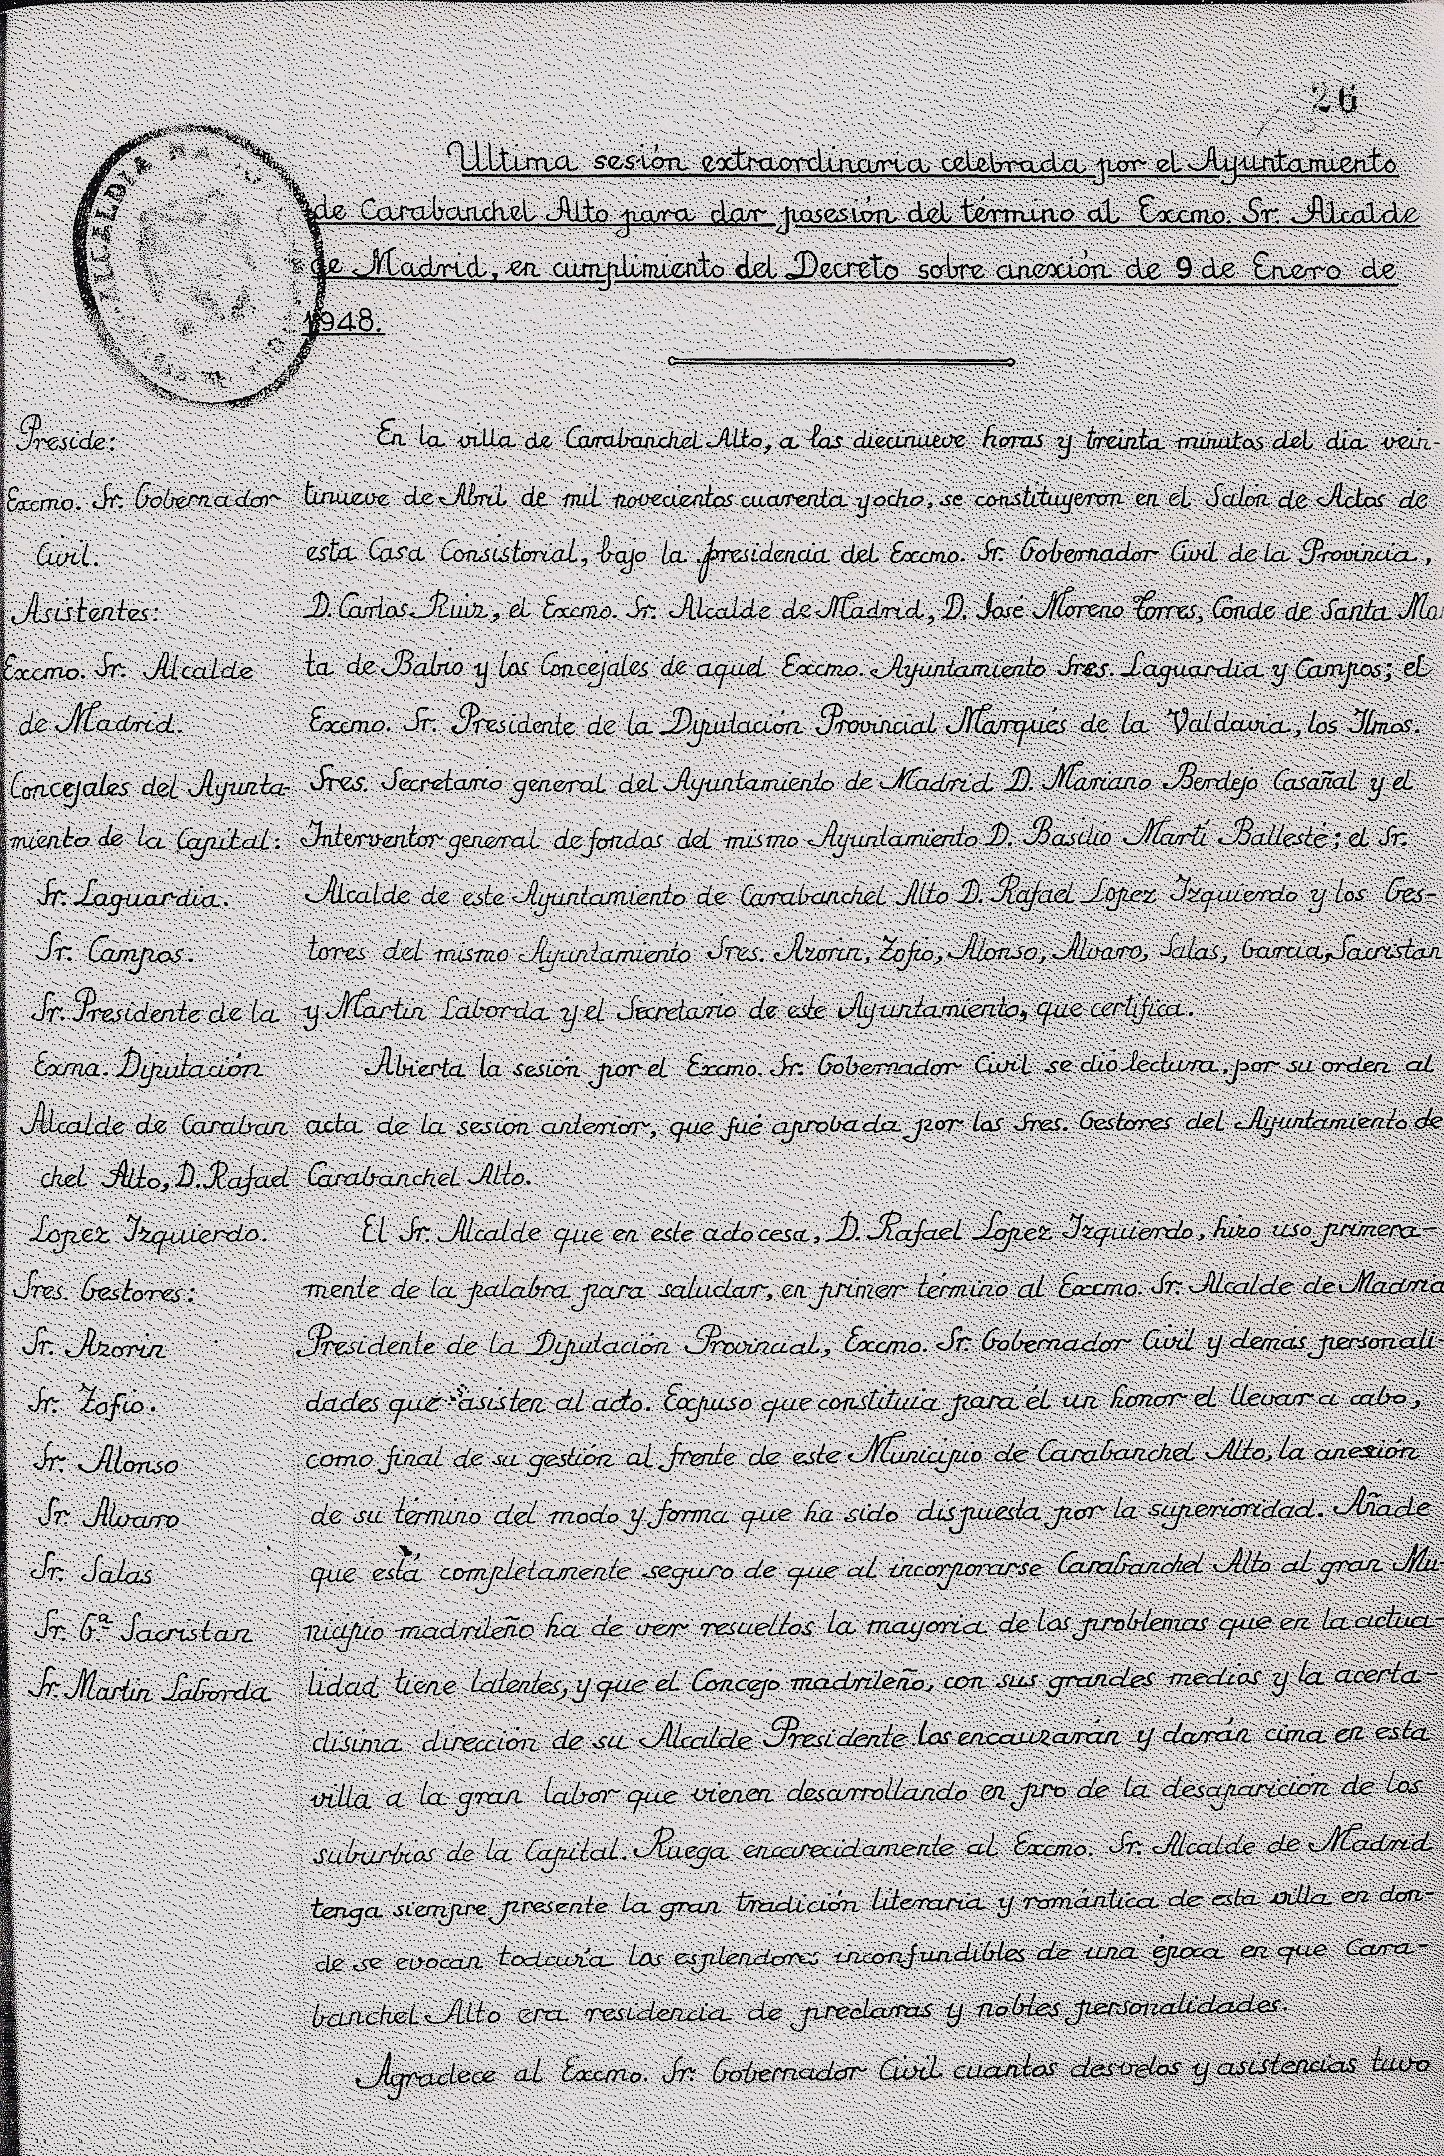 26
Ultima sesión extraordinaria celebrada por el Ayuntamiento
de Carabanchel Alto para dar posesión del término al Excmo. Sr. Alcalde
de Madrid, en cumplimiento del Decreto sobre anexión de 9 de Enero de
1948.
ALCALDIA
Preside:
Excmo. Sr. Gobernador
Civil.
Asistentes:
Excmo. Sr. Alcalde
de Madrid.
Concejales del Ayunta-
miento de la Capital:
Sr. Laguardia.
Sr. Campos.
Sr. Presidente de la
Exma. Diputación
Alcalde de Caraban
chel Alto, D. Rafael
Lopez Izquierdo.
Sres. Gestores:
Sr. Azorin
Sr. Zofio.
Sr. Alonso
Sr. Alvaro
Sr. Salas
Sr. Gª Sacristan
Sr. Martin Laborda
En la villa de Carabanchel Alto, a las diecinueve horas y treinta minutos del dia vein-
tinueve de Abril de mil novecientos cuarenta y ocho, se constituyeron en el Salón de Actos de
esta Casa Consistorial, bajo la presidencia del Excmo. Sr. Gobernador Civil de la Provincia,
D. Carlos Ruiz, el Excmo. Sr. Alcalde de Madrid, D. José Moreno Torres, Conde de Santa Mar
ta de Babio y los Concejales de aquel Excmo. Ayuntamiento Sres. Laguardia y Campos; el
Excmo. Sr. Presidente de la Diputación Provincial Marqués de la Valdavia, los Ilmos.
Sres. Secretario general del Ayuntamiento de Madrid D. Mariano Berdejo Casañal y el
Interventor general de fondos del mismo Ayuntamiento D. Basilio Martí Ballesté; el Sr.
Alcalde de este Ayuntamiento de Carabanchel Alto D. Rafael Lopez Izquierdo y los Ges-
tores del mismo Ayuntamiento Sres. Azorin, Zofio, Alonso, Alvaro, Salas, Garcia Sacristan
y Martin Laborda y el Secretario de este Ayuntamiento, que certifica.
Abierta la sesión por el Excmo. Sr. Gobernador Civil se dió lectura, por su orden al
acta de la sesion anterior, que fué aprobada por los Sres. Gestores del Ayuntamiento de
Carabanchel Alto.
El Sr. Alcalde que en este acto cesa, D. Rafael Lopez Izquierdo, hizo uso primera-
mente de la palabra para saludar, en primer término al Excmo. Sr. Alcalde de Madrid
Presidente de la Diputación Provincial, Excmo. Sr. Gobernador Civil y demás personali-
dades que asisten al acto. Expuso que constituia para él un honor el llevar a cabo,
como final de su gestión al frente de este Municipio de Carabanchel Alto, la anexión
de su término del modo y forma que ha sido dispuesta por la superioridad. Añade
que está completamente seguro de que al incorporarse Carabanchel Alto al gran Mu-
nicipio madrileño ha de ver resueltos la mayoria de los problemas que en la actua-
lidad tiene latentes, y que el Concejo madrileño, con sus grandes medios y la acerta-
disima dirección de su Alcalde Presidente los encauzarán y darán cima en esta
villa a la gran labor que vienen desarrollando en pro de la desaparición de los
suburbios de la Capital. Ruega encarecidamente al Excmo. Sr. Alcalde de Madrid
tenga siempre presente la gran tradición literaria y romántica de esta villa en don-
de se evocan todavía los esplendores inconfundibles de una época en que Cara-
banchel Alto era residencia de preclaras y nobles personalidades.
Agradece al Excmo. Sr. Gobernador Civil cuantos desvelos y asistencias tuvo